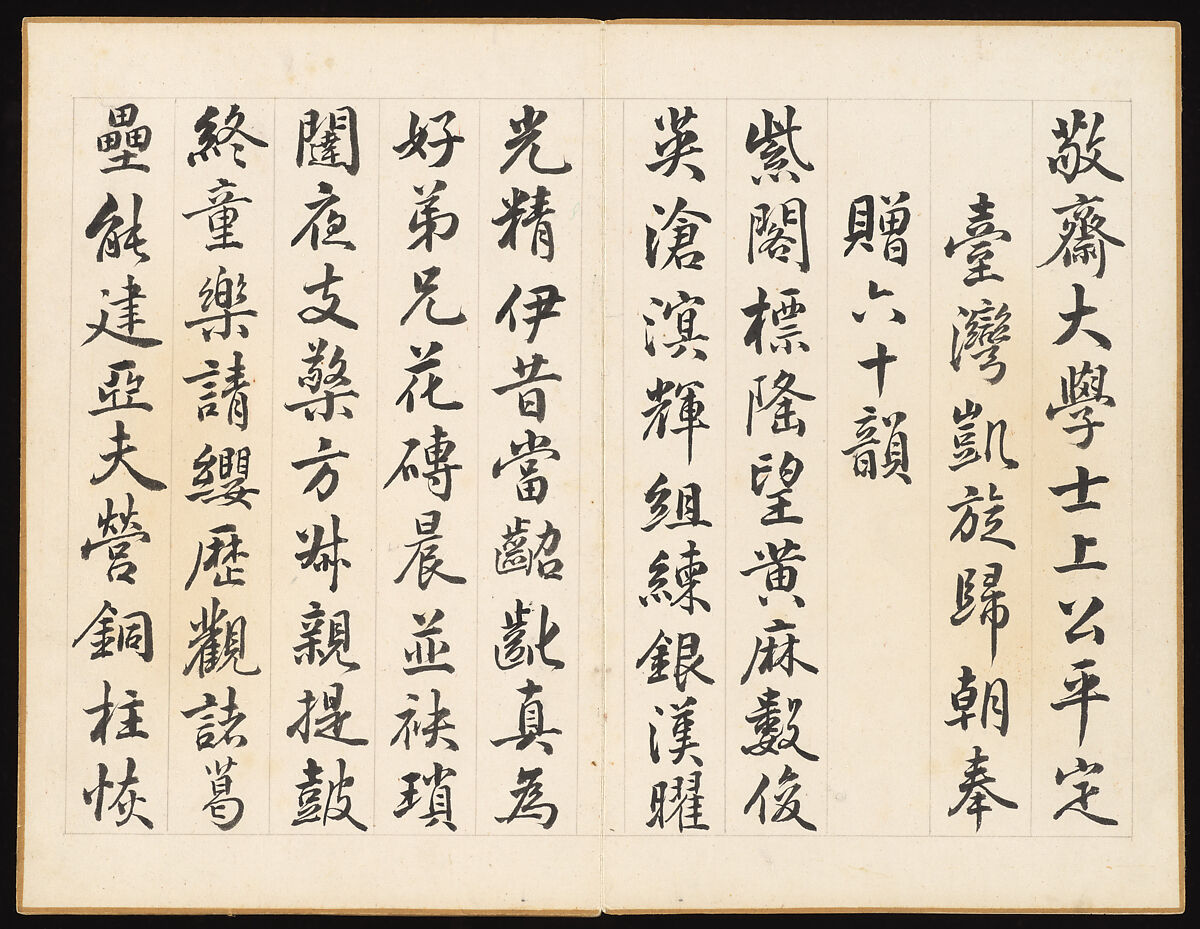 敬齋大學士上公平定
臺灣凱旋歸朝奉
贈六十韻
紫閣標隆望黃麻數俊
英滄溟輝組練銀漢曜
光精伊昔當齠齔真爲
好弟兄花磚晨並袂瑣
闥夜支檠方叔親提鼓
終童樂請纓歷觀諸葛
壘能建亞夫營銅柱恢